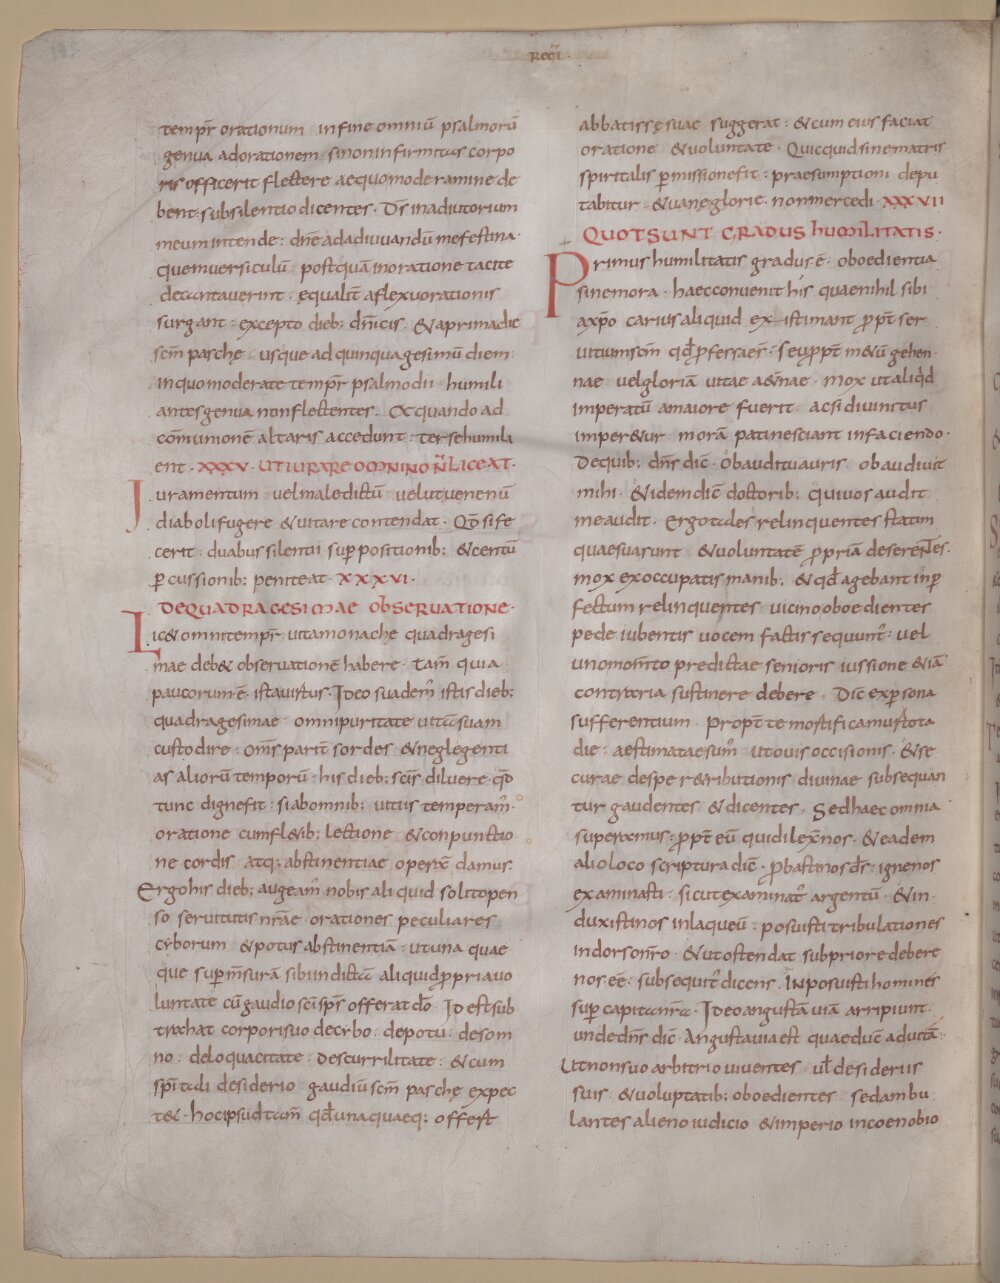 REGL·
tempr̄ orationum · infine omniū psalmorū
genua adorationem sinoninfirmitas corpo
ris officerit flectere aequomoderamine de
bent · subsilentio dicentes · Dꝰs̄ inadiutorium
meum intende : dn̄e adadiuuandū mefestina ·
quemuersiculū postquā inoratione tacite
decantauerint · ęqualit̄ aflexuorationis
surgant : excepto dieb; dn̄icis · &aprimadie
scm̄ paschę usque adquinquagesimū diem
inquomoderate tempr̄ psalmodii humili
antesgenua nonflectentes · Et quando ad
cōmunionē altaris accedunt · ter sehumili
ent · XXXV · UTIURARE OMNINO N̄ LICEAT ·
Iuramentum uelmaledictū uelutuenenū
diaboli fugere &uitare contendat · Qd̄ sife
cerit : duabus silentii sup̄positionib; &centū
ꝑcussionib; peniteat · XXXVI ·
DEQUADRAGESIMAE OBSERVATIONE ·
Lic& omnitempr̄ uitamonache quadragesi
mae deb& obseruationē habere · Tam̄ quia
paucorum ē istauirtus · Ideo suadem̄ istis dieb;
quadragesimae omnipuritate uitā suam
custodire : om̄s parit̄ sordes &neglegenti
as aliorū temporū · his dieb; sc̄is diluere qd̄
tunc dignefit : siabomnib; uitiis temperam̄ ·
oratione cumfl&ib; lectione &conpunctio
ne cordis atq; abstinentiae operā damus ·
Ergohis dieb; augeam̄ nobis ali quid solitopen
so seruitutis nrāe · orationes peculiares
cyborum &potus abstinentiā : utuna quae
que sup̄ m̄surā sibiindictā aliquid ꝓpriauo
luntate cū gaudio sc̄i sp̄s offerat dō · Id est sub
trahat corporisuo decybo · depotu · desom
no · deloquacitate · descurrilitate : &cum
sp̄itali desiderio gaudiū scm̄ paschę expec
t& · hocipsūd tam̄ qd̄ unaquaeq; offert
abbatissę suae suggerat : &cum eius faciat
oratione &uoluntate · Quicquid sinematris
spiritalis ꝑmissionefit : praesumptioni depu
tabitur &uaneglorie · nonmercedi · XXXVII
QUOTSUNT GRADUS HUMILITATIS ·
Primus humilitatis gradus ē · oboedientia
sinemora · haecconuenit his quaenihil sibi
axp̄o carius aliquid existimant ꝓpt̄ ser
uitiumscm̄ qd̄ ꝓfessaes̄ · seuꝓpt̄ m&ū gehen ·
nae uelgloriā uitae a&n̄ae · Mox utaliqd
imperatū amaiore fuerit acsi diuinitus
imper&ur · morā patinesciant infaciendo ·
Dequib; dn̄s dic̄ · Obauditu auris obaudiuit
mihi · &idemdic̄ doctorib; Quiuos audit
meaudit · Ergotales relinquentes statim
quaesuasunt &uoluntatē ꝓpriā deserentes ·
mox exoccupatis manib; &qd̄ agebant inꝑ
fectum relinquentes uicino oboedientes
pede iubentis uocem factis sequunt̄ : uel
unomom̄to predictae senioris iussione &iā
contraria sustinere debere · Dic̄ exꝑsona
sufferentium Propt̄ te mortificamur tota
die · aestimataesum̄ utouis occisionis · &se
curae despe r&ributionis diuinae subsequan
tur gaudentes &dicentes · Sedhaec omnia
superamus · ꝓpt̄ eū quidilex̄ nos · &eadem
alioloco scriptura dic̄ · Probastinos ds̄ · ignenos
examinasti · sicutexaminat̄ argentū · &in ·
duxistinos inlaqueū : posuisti tribulationes
indorson̄ro · &utostendat subpriore debere
nos eē · subsequit̄ dicens · INposuisti homines
sup̄ capitan̄ra · Ideo angustā uiā arripiunt ·
undedn̄s dic̄ · Angustauia est quaeduc̄ aduitā ·
Utnonsuo arbitrio uiuentes ul̄ desideriis
suis &uoluptatib; oboedientes sedambu
lantes alieno iudicio &imperio incoenobio